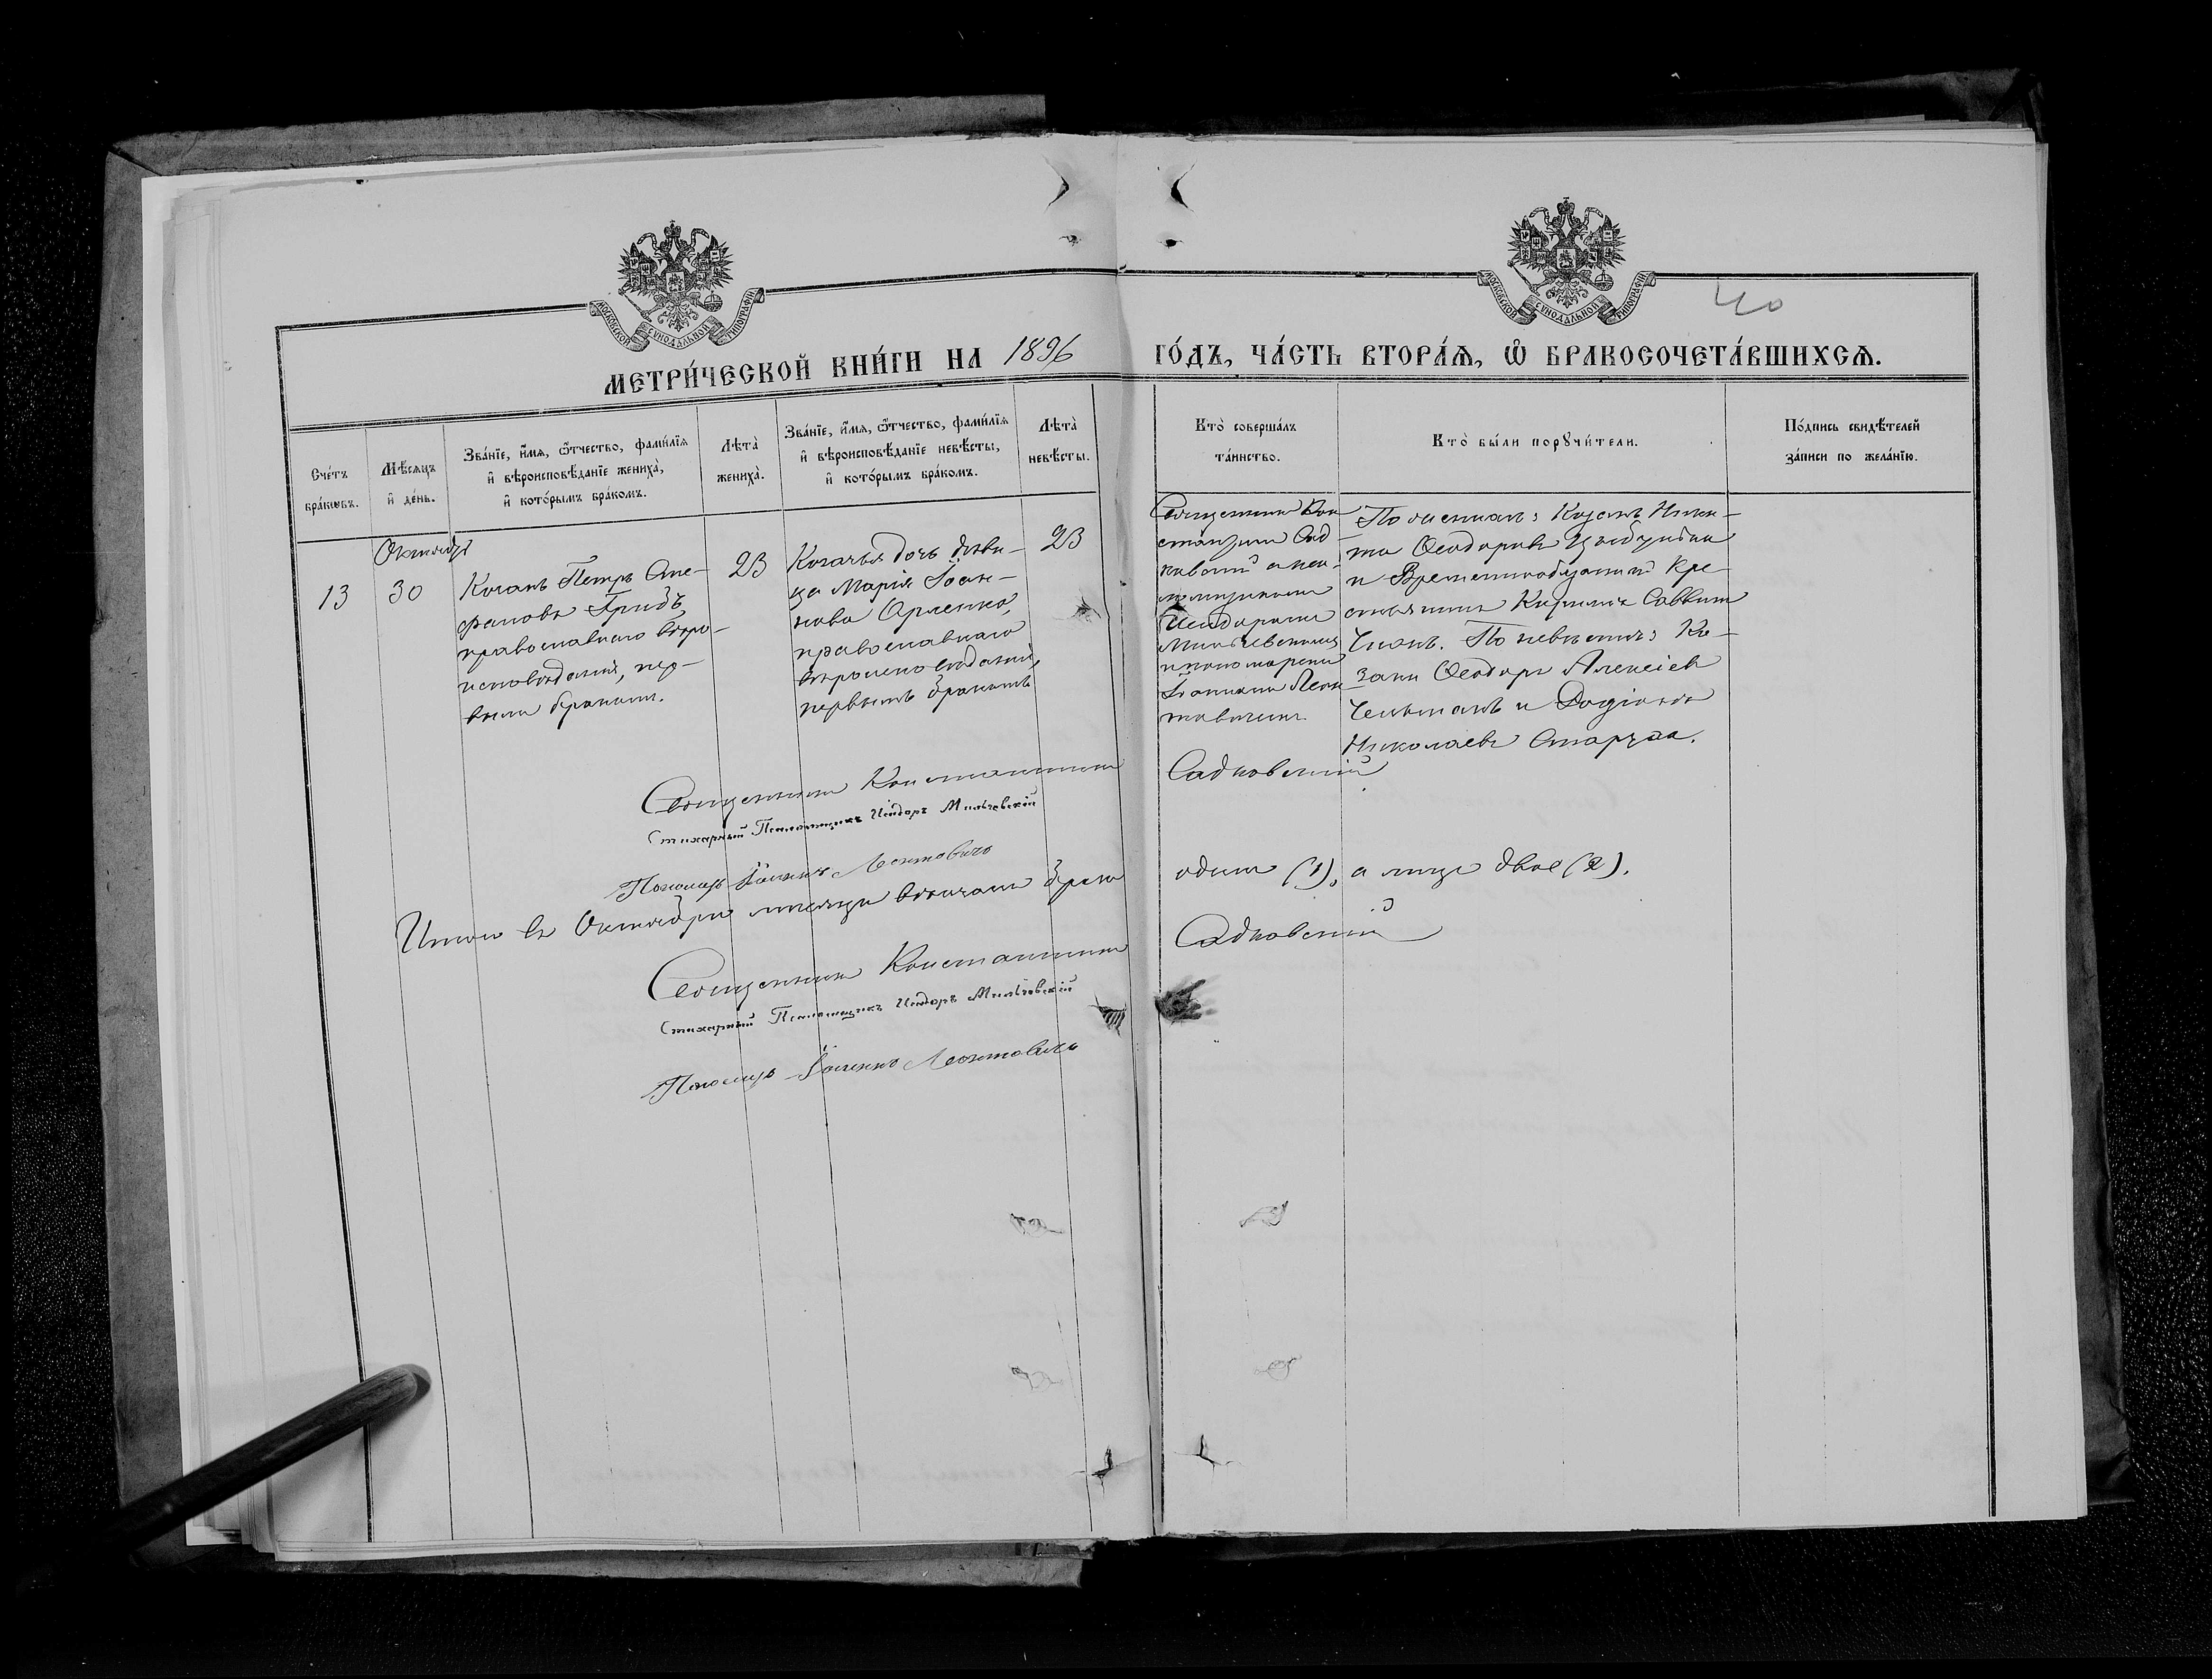 МОСКОВСКОЙ СѴНОДАЛЬНОЙ ТИПОГРАФІИ
МОСКОВСКОЙ СѴНОДАЛЬНОЙ ТИПОГРАФІИ
40
МЕТРИ́ЧЕСКОЙ КНИ́ГИ НА 1896 ГО́ДЪ, ЧА́СТЬ ВТОРА́Ѧ, Ѽ БРАКОСОЧЕТА́ВШИХСѦ.
Сче́тъ
бра́кѡвъ.
Мѣ́сѧцъ
и҆ де́нь.
Зва́нїе, и҆́мѧ, ѻ҆́тчество, фами́лїѧ
и҆ вѣроисповѣ́данїе жениха̀,
и҆ кото́рымъ бра́комъ.
Лѣта̀
жениха̀.
Зва́нїе, и҆́мѧ, ѻ҆́тчество, фами́лїѧ
и҆ вѣроисповѣ́данїе невѣ́сты,
и҆ кото́рымъ бра́комъ.
Лѣта̀
невѣ́сты.
Кто̀ соверша́лъ
та́инство.
Кто̀ бы́ли порꙋчи́тели.
По́дпись свидѣ́телей
за́писи по жела́нїю.
Октября
13
30
Козакъ Петръ Сте-
фановъ Гридъ,
православнаго вѣро-
исповѣданія, пер-
вымъ бракомъ.
23
Козачья дочь дѣви-
ца Марія Іоан-
нова Орленко,
православнаго
вѣроисповѣданія,
первымъ бракомъ
23
Священникъ Кон-
стантинъ Сад-
ковскій съ пса-
ломщикомъ
Исидоромъ
Мильчевскимъ
и пономаремъ
Іоанномъ Леон-
товичемъ.
По женихѣ: Козакъ Ники-
та Ѳеодоровъ
и Временнообязанный Кре-
стьянинъ Кириллъ Саввинъ
По невѣстѣ: Ко-
заки Ѳеодоръ Алексіевъ
и Родіонъ
Николаевъ
Священникъ Константинъ Садковскій
Стихарный Псаломщикъ Исидоръ Мильчевскій
Пономарь Іоаннъ Леонтовичъ
Итого въ Октябрѣ мѣсяцѣ вѣнчано бракъ одинъ (1), а лицъ двое (2).
Священникъ Константинъ Садковскій
Стихарный Псаломщикъ Исидоръ Мильчевскій
Пономарь Іоаннъ Леонтовичъ